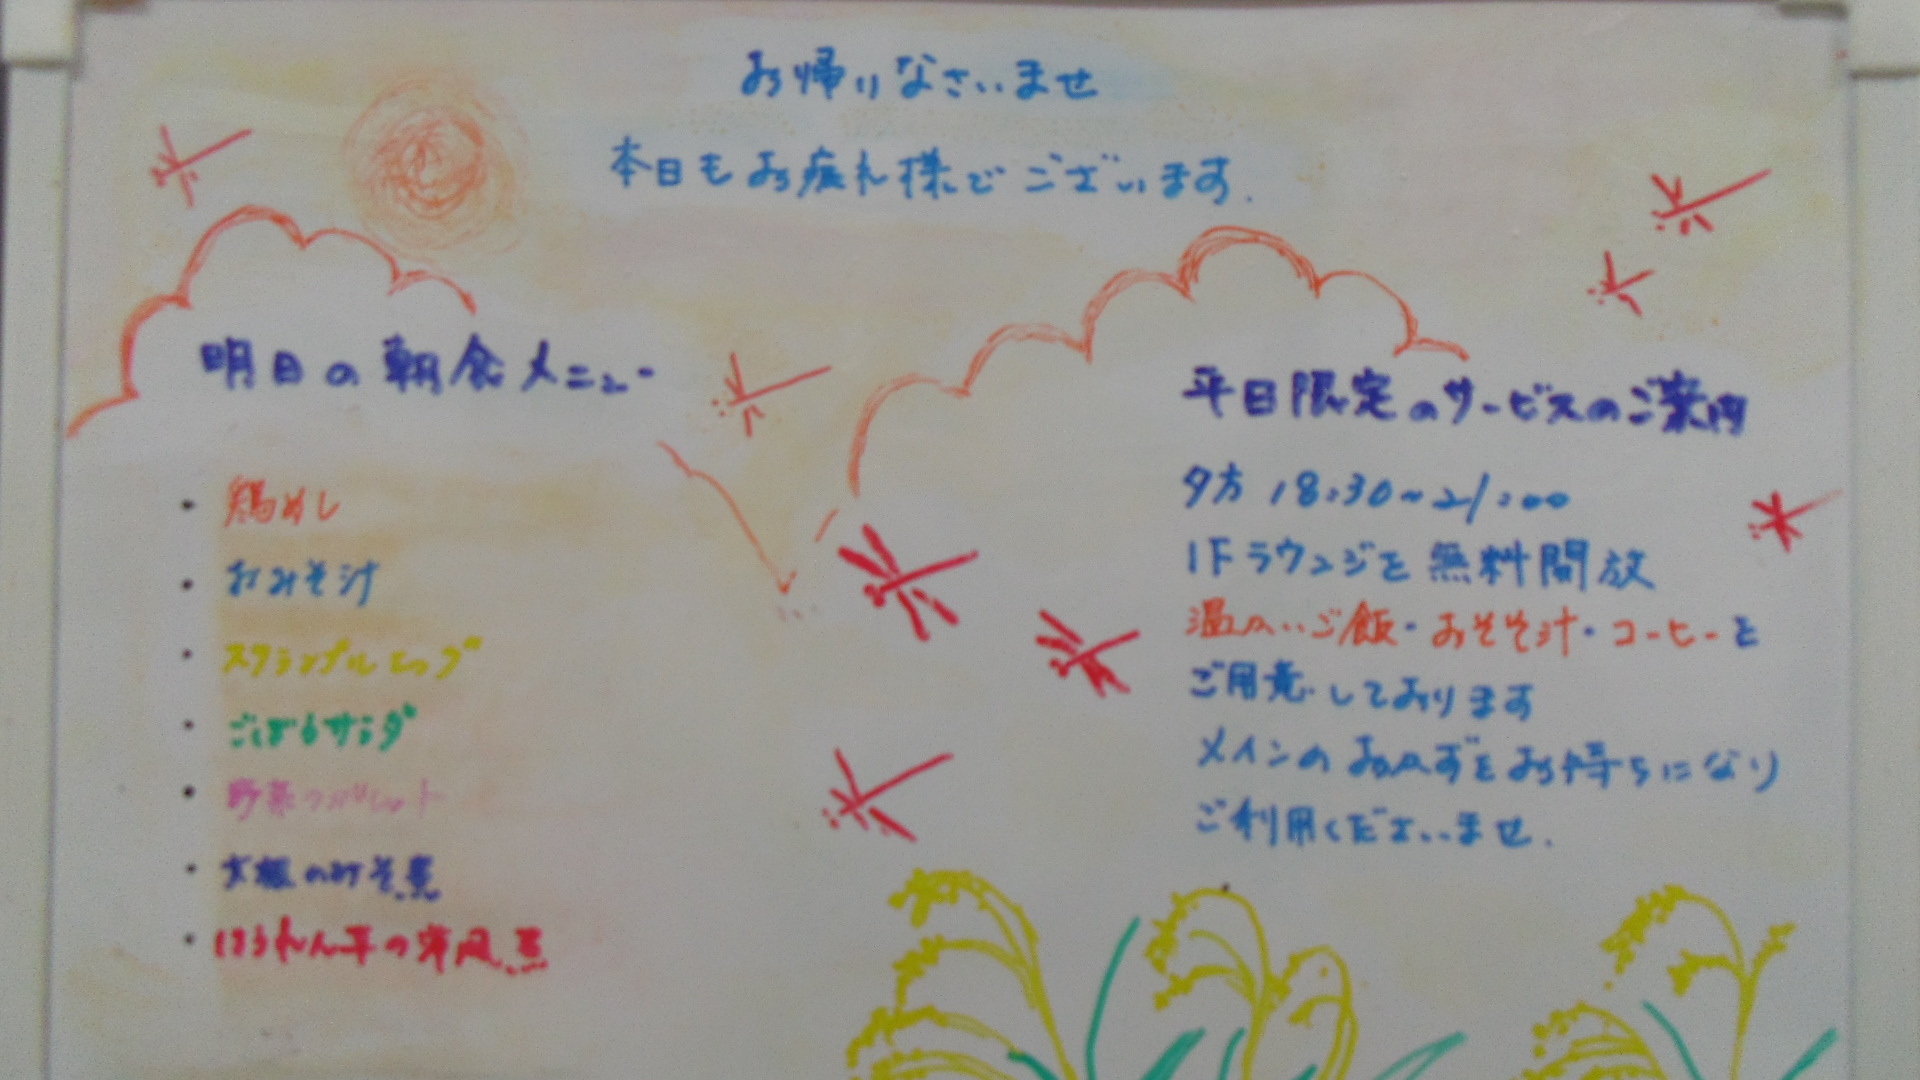 お帰りなさいませ
本日もお疲れ様でございます.
明日の朝食メニュー
・鶏めし
・おみそ汁
・スクランブルエッグ
・ごぼうサラダ
・野菜
・大根のみそ煮
・ほうれん草の洋風煮
平日限定のサービスのご案内
夕方 18:30~21:00
1Fラウンジを無料開放
温かいご飯・おみそ汁・コーヒーを
ご用意しております
メインのおかずをお持ちになり
ご利用くださいませ.